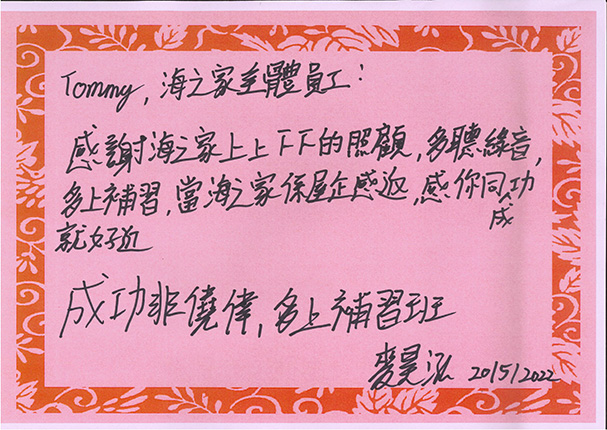 Tommy, 海之家全體員工:
感謝海之家上上下下的照顧, 多聽錄音,
多上補習, 當海之家係屋企感返, 感你同成功
就好近
成功非僥倖, 多上補習班
麥昊泓 20/5/2022